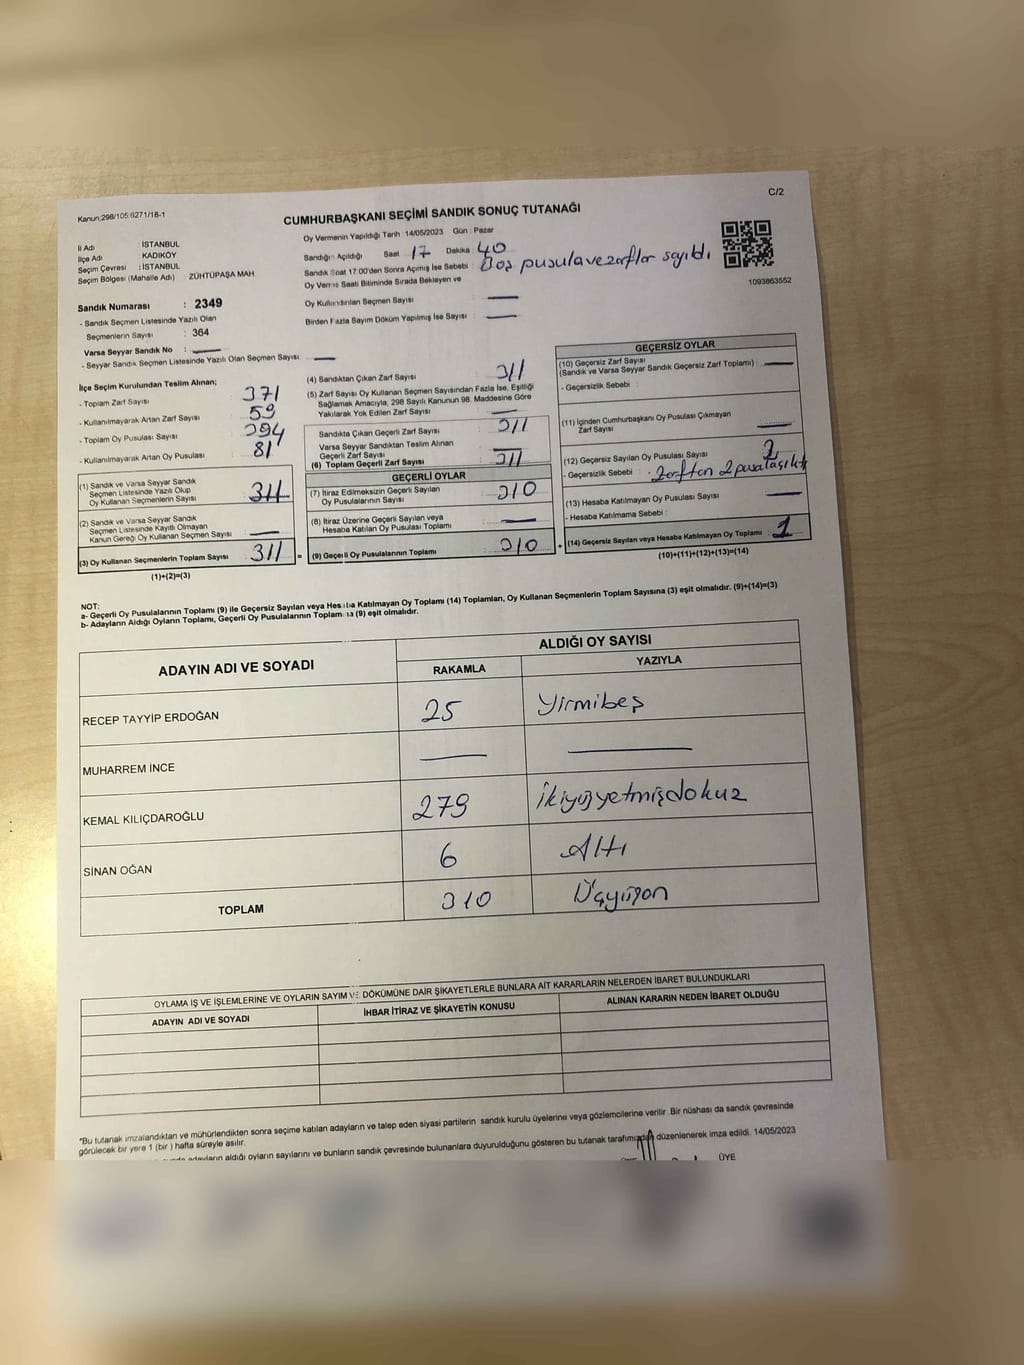 C/2
Kanun;298/105;6271/18-1
CUMHURBAŞKANI SEÇİMİ SANDIK SONUÇ TUTANAĞI
İl Adı : İSTANBUL
İlçe Adı : KADIKÖY
Seçim Çevresi : İSTANBUL
Seçim Bölgesi (Mahalle Adı) ZÜHTÜPAŞA MAH.
Oy Vermenin Yapıldığı Tarih : 14/05/2023 Gün : Pazar
Sandığın Açıldığı Saat 17 Dakika : 40
Sandık Saat 17:00'den Sonra Açımış İse Sebebi : Boş pusula ve zarflar sayıldı
Oy Verme Saati Bitiminde Sırada Bekleyen ve
Oy Kullandırılan Seçmen Sayısı : —
Birden Fazla Sayım Döküm Yapılmış İse Sayısı : —
1093863552
Sandık Numarası : 2349
- Sandık Seçmen Listesinde Yazılı Olan
Seçmenlerin Sayısı : 364
Varsa Seyyar Sandık No : —
- Seyyar Sandık Seçmen Listesinde Yazılı Olan Seçmen Sayısı: —
İlçe Seçim Kurulundan Teslim Alınan;
- Toplam Zarf Sayısı : 371
- Kullanılmayarak Artan Zarf Sayısı : 59
- Toplam Oy Pusulası Sayısı : 394
- Kullanılmayarak Artan Oy Pusulası : 81
(1) Sandık ve Varsa Seyyar Sandık
Seçmen Listesinde Yazılı Olup
Oy Kullanan Seçmenlerin Sayısı : 311
(2) Sandık ve Varsa Seyyar Sandık
Seçmen Listesinde Kayıtlı Olmayan
Kanun Gereği Oy Kullanan Seçmen Sayısı : —
(3) Oy Kullanan Seçmenlerin Toplam Sayısı : 311 =
(1)+(2)=(3)
(4) Sandıktan Çıkan Zarf Sayısı : 311
(5) Zarf Sayısı Oy Kullanan Seçmen Sayısından Fazla İse, Eşitliği
Sağlamak Amacıyla, 298 Sayılı Kanunun 98. Maddesine Göre
Yakılarak Yok Edilen Zarf Sayısı : —
Sandıkta Çıkan Geçerli Zarf Sayısı : 311
Varsa Seyyar Sandıktan Teslim Alınan
Geçerli Zarf Sayısı : —
(6) Toplam Geçerli Zarf Sayısı : 311
GEÇERLİ OYLAR
(7) İtiraz Edilmeksizin Geçerli Sayılan
Oy Pusulalarının Sayısı : 310
(8) İtiraz Üzerine Geçerli Sayılan veya
Hesaba Katılan Oy Pusulası Toplamı : —
(9) Geçerli Oy Pusulalarının Toplamı : 310 +
GEÇERSİZ OYLAR
(10) Geçersiz Zarf Sayısı
(Sandık ve Varsa Seyyar Sandık Geçersiz Zarf Toplamı) : —
- Geçersizlik Sebebi :
(11) İçinden Cumhurbaşkanı Oy Pusulası Çıkmayan
Zarf Sayısı : —
(12) Geçersiz Sayılan Oy Pusulası Sayısı : 2
- Geçersizlik Sebebi : Zarftan 2 pusula çıktı
(13) Hesaba Katılmayan Oy Pusulası Sayısı : —
- Hesaba Katılmama Sebebi :
(14) Geçersiz Sayılan veya Hesaba Katılmayan Oy Toplamı : 1
(10)+(11)+(12)+(13)=(14)
NOT:
a- Geçerli Oy Pusulalarının Toplamı (9) ile Geçersiz Sayılan veya Hesaba Katılmayan Oy Toplamı (14) Toplamları, Oy Kullanan Seçmenlerin Toplam Sayısına (3) eşit olmalıdır. (9)+(14)=(3)
b- Adayların Aldığı Oyların Toplamı, Geçerli Oy Pusulalarının Toplamına (9) eşit olmalıdır.
ADAYIN ADI VE SOYADI ALDIĞI OY SAYISI
RAKAMLA YAZIYLA
RECEP TAYYİP ERDOĞAN 25 Yirmibeş
MUHARREM İNCE — —
KEMAL KILIÇDAROĞLU 279 İkiyüzyetmişdokuz
SİNAN OĞAN 6 Altı
TOPLAM 310 Üçyüzon
OYLAMA İŞ VE İŞLEMLERİNE VE OYLARIN SAYIM VE DÖKÜMÜNE DAİR ŞİKAYETLERLE BUNLARA AİT KARARLARIN NELERDEN İBARET BULUNDUKLARI
ADAYIN ADI VE SOYADI İHBAR İTİRAZ VE ŞİKAYETİN KONUSU ALINAN KARARIN NEDEN İBARET OLDUĞU
*Bu tutanak imzalandıktan ve mühürlendikten sonra seçime katılan adayların ve talep eden siyasi partilerin sandık kurulu üyelerine veya gözlemcilerine verilir .Bir nüshası da sandık çevresinde
görülecek bir yere 1 (bir ) hafta süreyle asılır.
adayların aldığı oyların sayılarını ve bunların sandık çevresinde bulunanlara duyurulduğunu gösteren bu tutanak tarafımızdan düzenlenerek imza edildi. 14/05/2023
ÜYE